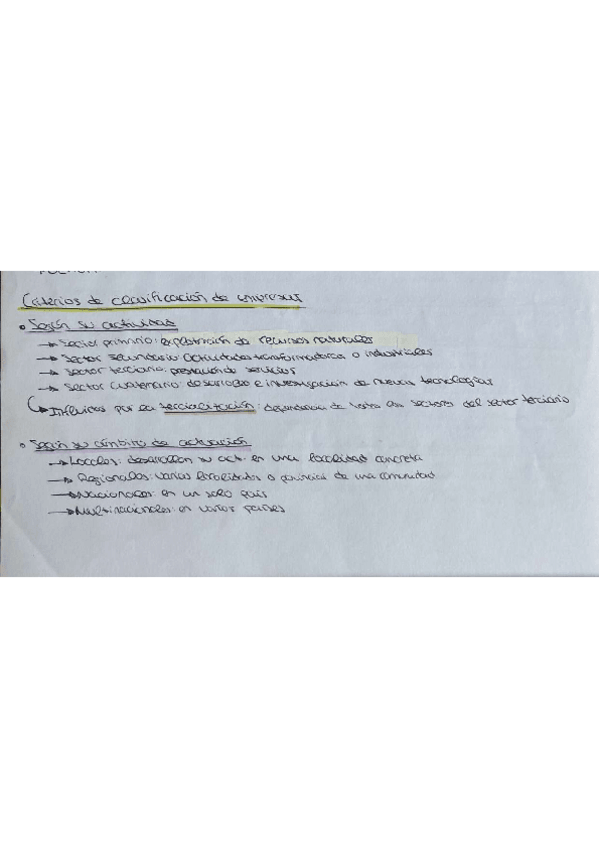 Criterios de clasificación de empresas
Según su actividad
→ Sector primario: explotación de recursos naturales
→ Sector secundario: actividades transformadoras o industriales
→ Sector terciario: prestación de servicios
→ Sector cuaternario: desarrollo e investigación de nuevas tecnologías
Influidas por la : dependencia de sectores del sector terciario
Según su ámbito de actuación
→ Locales: desarrollan su act. en una localidad concreta
→ Regionales: varias localidades o provincias de una comunidad
→ Nacionales: en un solo país
→ Multinacionales: en varios países